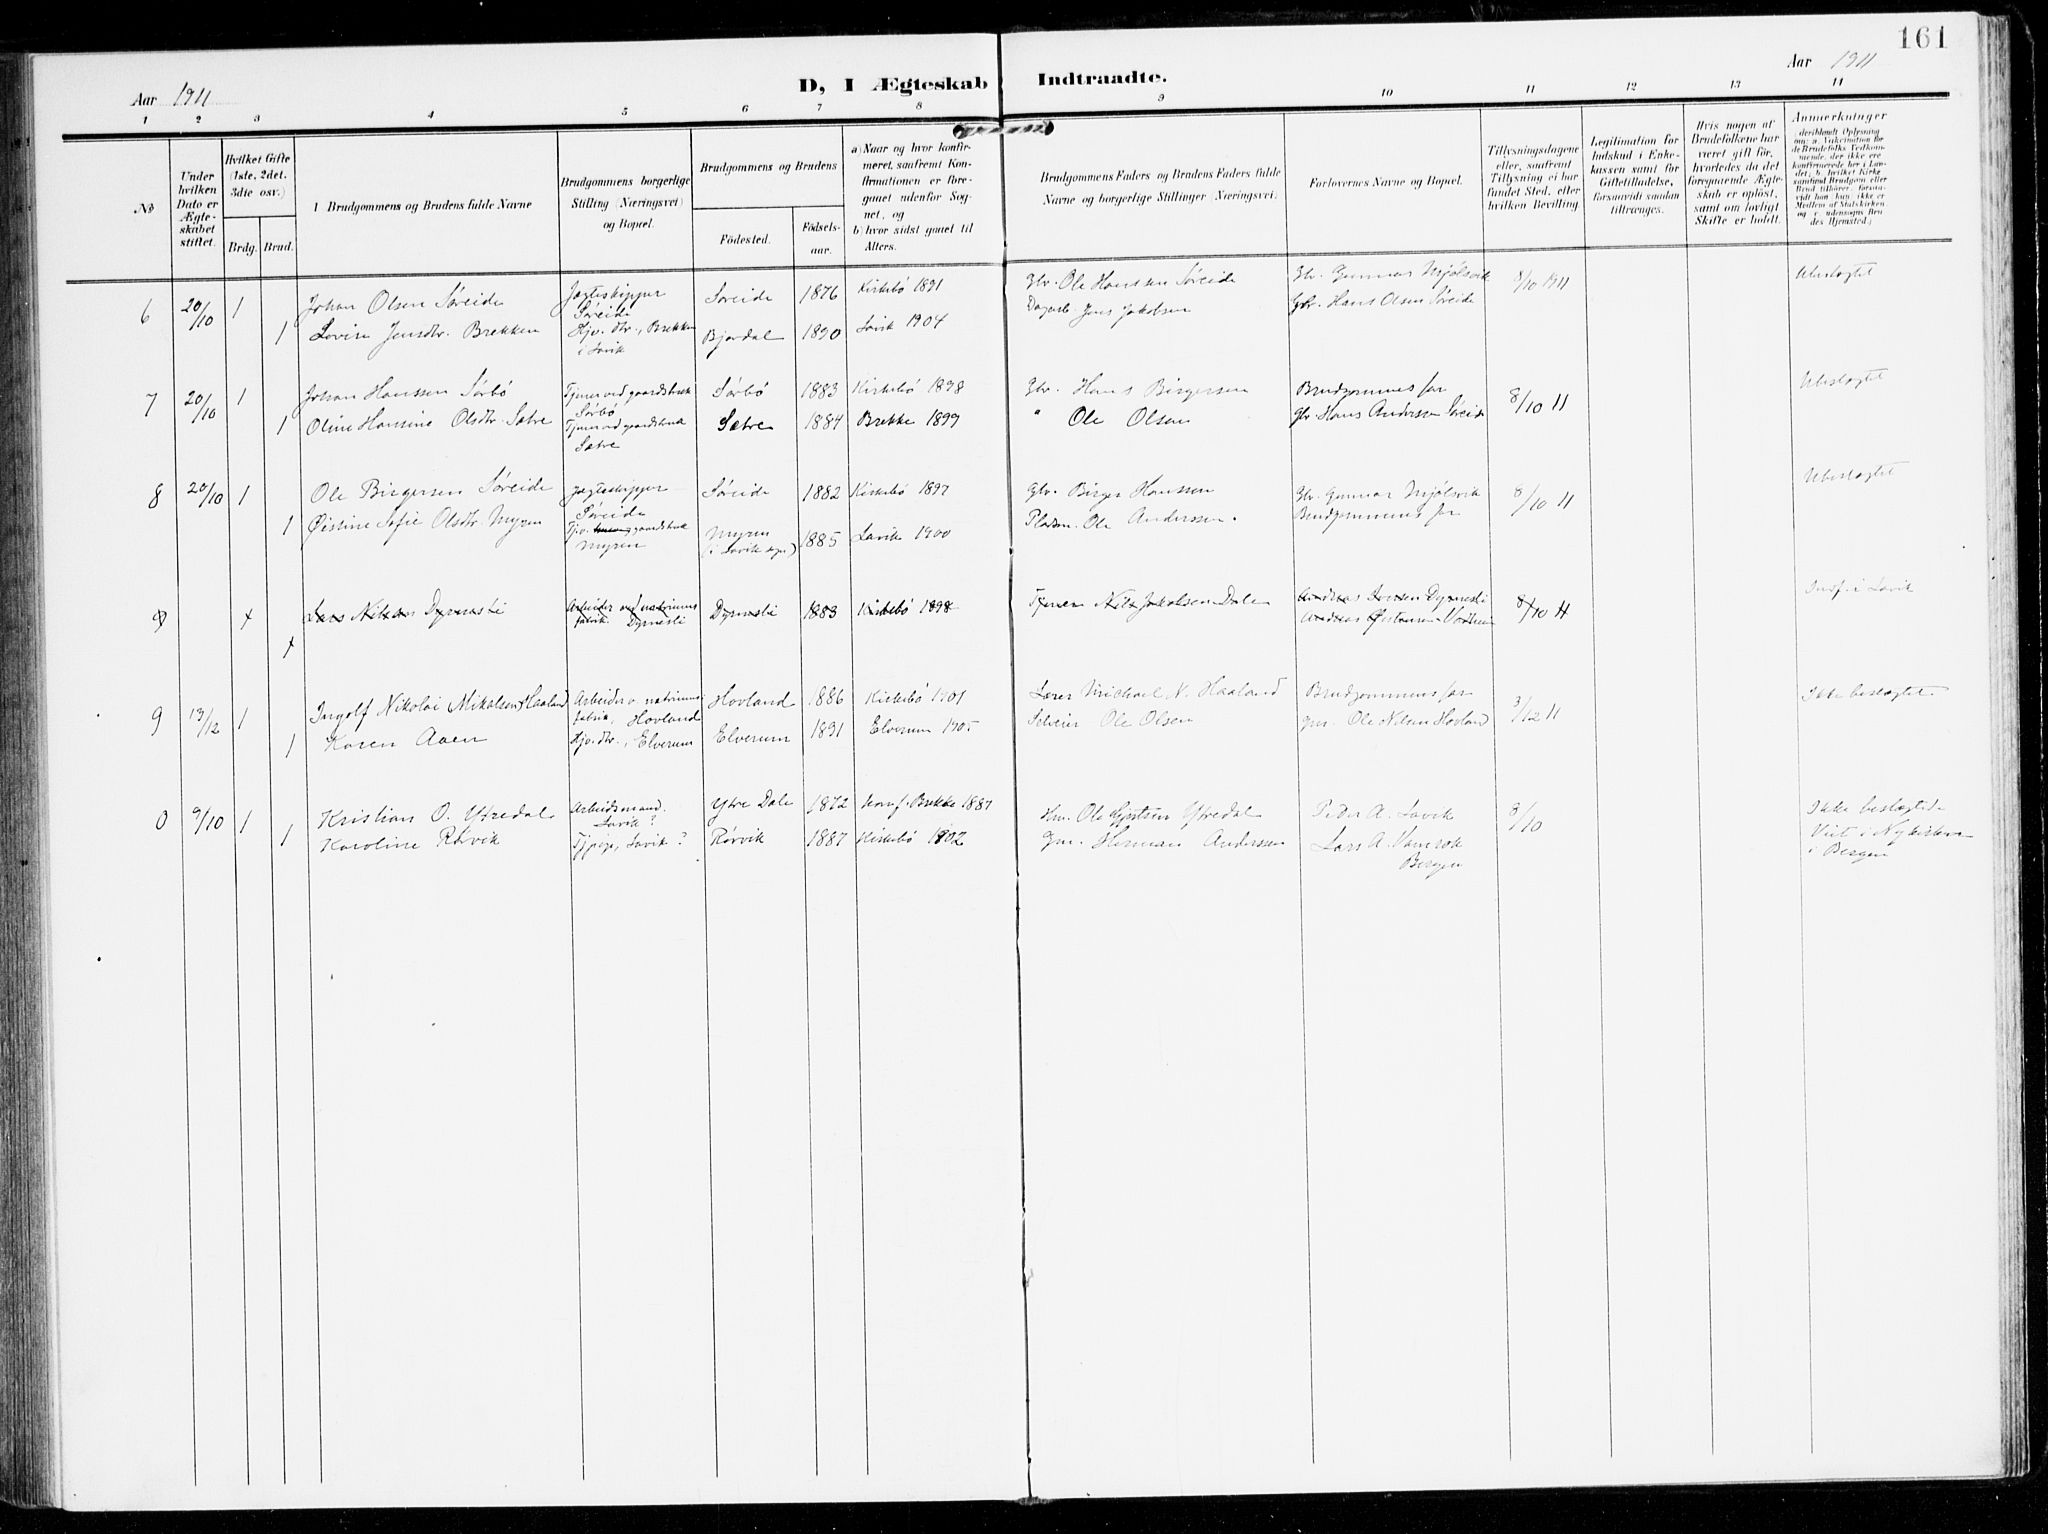 161
Aar 1911
D, I Ægteskab Indtraadte.
Aar 1911
1 2 3 4 5 6 7 8 9 10 11 12 13 14
No
Under hvilken Dato er Ægteskabet stiftet.
Hvilket Gifte (1ste, 2det, 3die osv.)
Brdg. Brud.
Brudgommens og Brudens fulde Navne
Brudgommens borgerlige Stilling (Næringsvei) og Bopæl.
Brudgommens og Brudens
Födested. Födselsaar.
a) Naar og hvor konfirmeret, saafremt Konfirmationen er foregaaet udenfor Sognet, og
b) hvor sidst gaaet til Alters.
Brudgommens Faders og Brudens Faders fulde Navne og borgerlige Stillinger (Næringsvei).
Forlovernes Navne og Bopæl.
Tillysningsdagene eller, saafremt Tillysning ei har fundet Sted, efter hvilken Bevilling.
Legitimation for Indskud i Enkekassen samt for Giftetilladelse, forsaavidt saadan tiltrænges.
Hvis nogen af Brudefolkene har været gift før, hvorledes da det foregaaende Ægteskab er oplöst, samt om lovligt Skifte er holdt.
Anmerkninger
6 20/10 1 Johan Olsen Søreide Jægteskipper Søreide Soreide 1876 Kirkebö 1891 Gbr. Ole Hanssen Søreide Gbr. Gunnar Mjølsvik 8/10 1911 Ubeslægtet
1 Lovise Jensdtr. Brekken Hjv. dtr., Brekken i Lavik Bjordal 1890 Lavik 1904 Jens Jakobsen Gbr. Hans Olsen Søreide
7 20/10 1 Johan Hanssen Sørbö Tjener ved gaardsbruk Sørbö Sørbö 1883 Kirkebö 1898 Gbr. Hans Birgersen Brudgommens far 8/10 11 Ubeslægtet
1 Oline Hansine Olsdtr. Sætre Tjener ved gaardsbruk Sætre Sætre 1884 Brekke 1899 " Ole Olsen Gbr. Hans Anderssen Søreide
8 20/10 1 Ole Birgersen Søreide Jægteskipper Søreide Søreide 1882 Kirkebö 1897 Gbr. Birger Hanssen Gbr. Gunnar Mjølsvik 8/10 11 Ubeslægtet
1 Øistine Sofie Olsdtr. Myren gaardsbruk Myren Myren (i Lavik sogn) 1885 Lavik 1900 Pladsm. Ole Anderssen. Brudgommens far
9 1 Lars Nilsen Dyrnesli Arbeider ved natriumsfabrik. Dyrnesli Dyrnesli 1883 Kirkebö 1898 Tjener Nils Jakobsen Dale Andreas Iversen Dyrnesli 8/10 11 Indf. i Lavik
1 Andreas Øistensen Vadheim
9 13/12 1 Ingolf Nikolai Mikalsen Haaland Arbeider v natriumsfabrik, Hovland Hovland 1886 Kirkebö 1901 Lærer Michael N. Haaland Brudgommens far 3/12 11 Ikke beslægtet
1 Karen Aaen Hjv. dtr., Elverum Elverum 1891 Elverum 1905 Ole Olsen Gm. Ole Nilsen Hovland
0 9/10 1 Kristian O. Ytredal Arbeidsmand. Lavik? Ytre Dale 1872 konf. Brekke 1887 Ole Ytredal Peder A. Lavik 8/10 Ikke beslægtede
1 Karoline Rörvik Tjpige, Lavik? Rörvik 1887 Kirkebö 1902 Gm. Herman Anderssen Lars A. Bergen Viet i Nykirken i Bergen